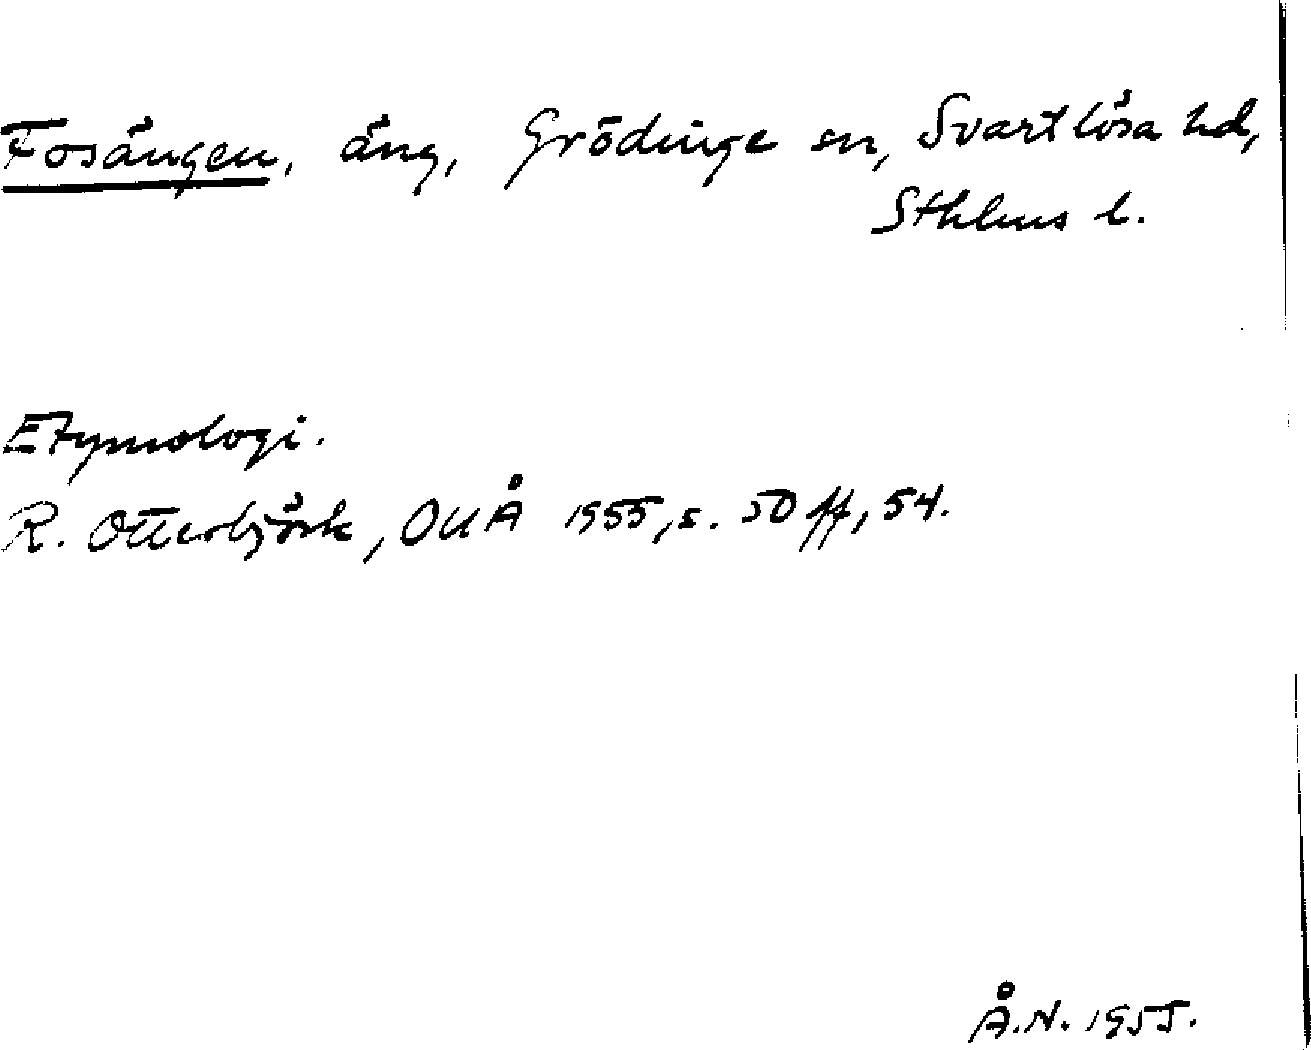 Fosängen, äng, Grödinge sn, Svartlösa hd,
Sthlms l.
Etymologi.
R. Otterbjörk, OUÅ 1955, s. 50 ff, 54.
Å.N. 1955.